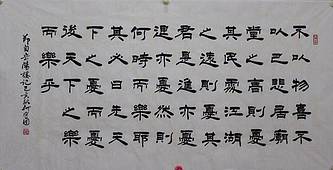 不以物喜不
以己悲居廟
堂之高則憂
其民處江湖
之遠則憂其
君是進亦憂
退亦憂然則
何時而樂耶
其必曰先天
下之憂而憂
後天下之樂
而樂乎
岳陽樓記